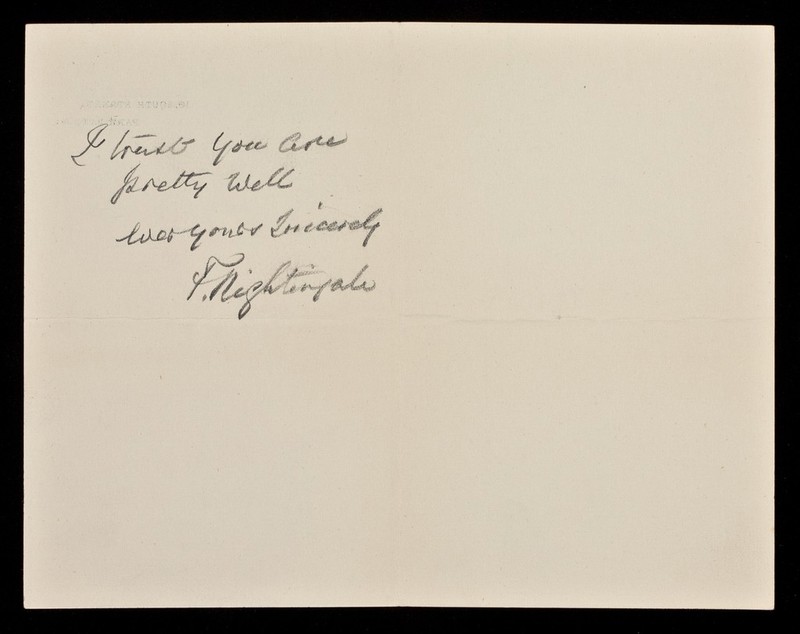 I trust you are
pretty well
ever yours Sincerely
F. Nightingale